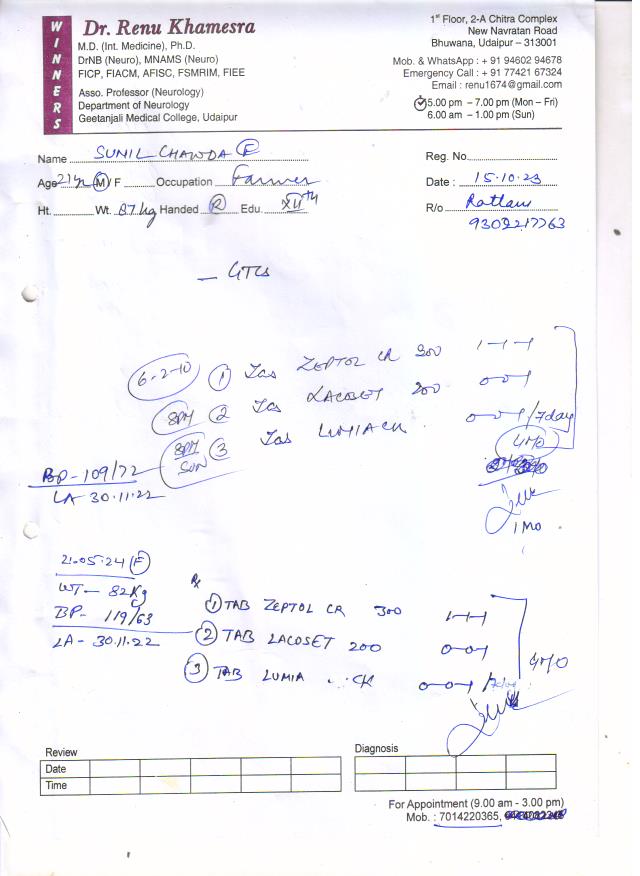 WINNERS
Dr. Renu Khamesra
M.D. (Int. Medicine), Ph.D.
DrNB (Neuro), MNAMS (Neuro)
FICP, FIACM, AFISC, FSMRIM, FIEE
Asso. Professor (Neurology)
Department of Neurology
Geetanjali Medical College, Udaipur
1st Floor, 2-A Chitra Complex
New Navratan Road
Bhuwana, Udaipur – 313001
Mob. & WhatsApp : + 91 94602 94678
Emergency Call : + 91 77421 67324
Email : renu1674@gmail.com
5.00 pm – 7.00 pm (Mon – Fri)
6.00 am – 1.00 pm (Sun)
Name SUNIL CHAWDA F Reg. No.
Age 21 yr M/ F Occupation Farmer Date : 15.10.23
Ht. Wt. 87 kg Handed R Edu. XIIth R/o Ratlam
9302217763
– GTCs
6-2-10 1 Tas ZEPTOL CR 300 1-1-1
8PM 2 Tas LACOSET 200 0-0-1
8PM SUN 3 Tas LUMIA CK 0-0-1/7day
4MO
BP - 109/72
LA 30.11.22
1 Mo
21.05.24 F
WT - 82Kg
BP - 119/63
LA - 30.11.22
Rx
1 TAB ZEPTOL CR 300 1-1-1
2 TAB LACOSET 200 0-0-1
3 TAB LUMIA CK 0-0-1
4MO
Review
Date
Time
Diagnosis
For Appointment (9.00 am - 3.00 pm)
Mob. : 7014220365,